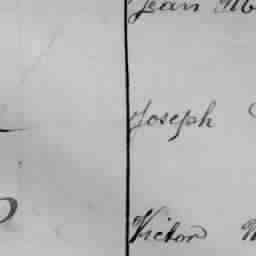 Jean
Joseph
Victor